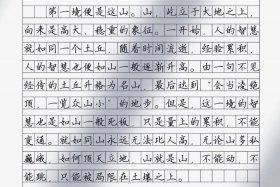 第一境便是这山。山，屹立于大地之上，
向来是高大、稳重的象征。一开始，人的智慧
就如同一个土丘，随着时间流逝，经验累积，
人的智慧也便如山一般逐渐升高。由一句不见
经传的土丘升格为名山，最后达到“会当凌绝
顶，一览众山小”的地步。但是，这一境的智
慧也是如山一般死板，只是量上的累积，不能
变通。就如同山永远无法比人高，无论山多私
巍峨，如何顶天立地，山就是山，不能动，不
能跳，只能被局限在土壤之上。